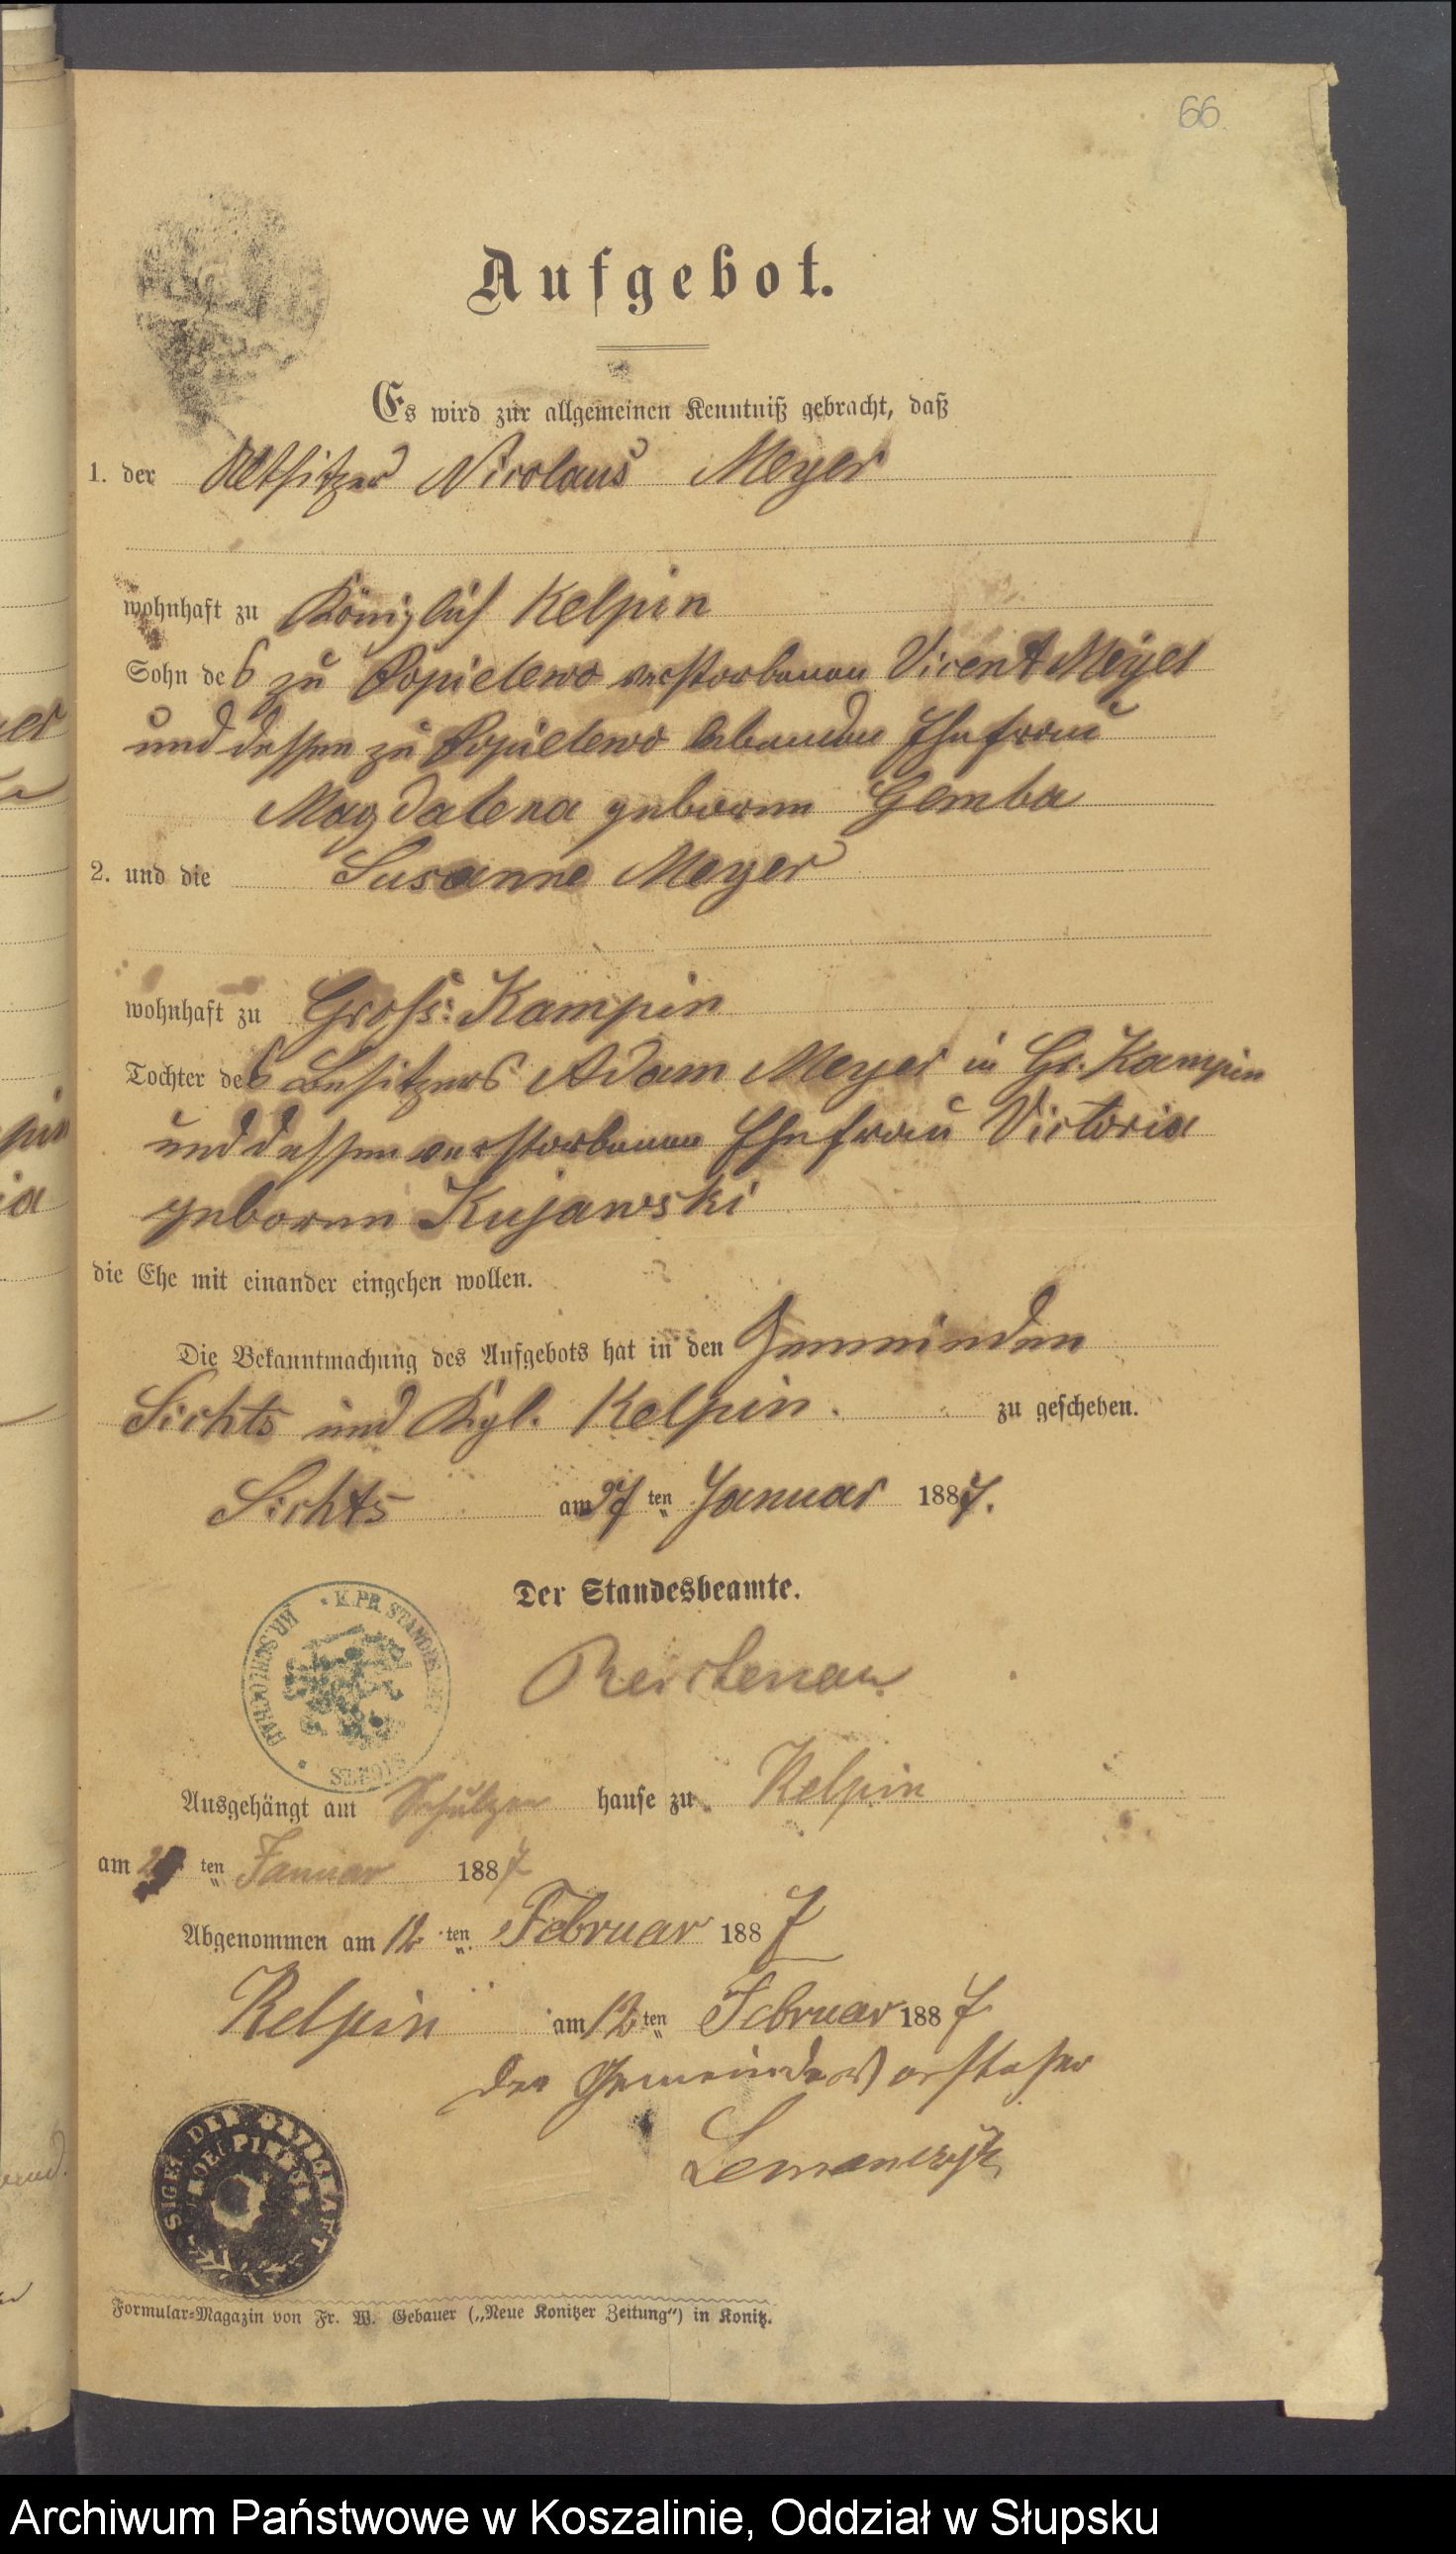 66
Aufgebot.
Es wird zur allgemeinen Kenntniß gebracht, daß
1. der Altsitzer Nicolaus Meyer
wohnhaft zu Königlich Kelpin
Sohn des zu Popielewo verstorbenen Vicent Meyer
und dessen zu Popielewo lebenden Ehefrau
Magdalena geborene Gemba
2. und die Susanne Meyer
wohnhaft zu Gross: Kampin
Tochter des Besitzers Adam Meyer in Gr. Kampin
und dessen verstorbenen Ehefrau Victoria
geborene Kujawski
die Ehe mit einander eingehen wollen.
Die Bekanntmachung des Aufgebots hat in den Gemeinden
Sichts und Kgl. Kelpin. zu geschehen.
Sichts am 27 ten Januar 1887.
Der Standesbeamte.
K. PR. STANDES
SICHTS
Ausgehängt am Schulzen hause zu Kelpin
am ten Januar 1887
Abgenommen am 12 ten Februar 1887
Kelpin am 12 ten Februar 1887
Der Gemeindevorsteher
Lemanczyk
SIEGEL DER ORTSCHAFT
Formular-Magazin von Fr. W. Gebauer („Neue Konitzer Zeitung“) in Konitz.
Archiwum Państwowe w Koszalinie, Oddział w Słupsku